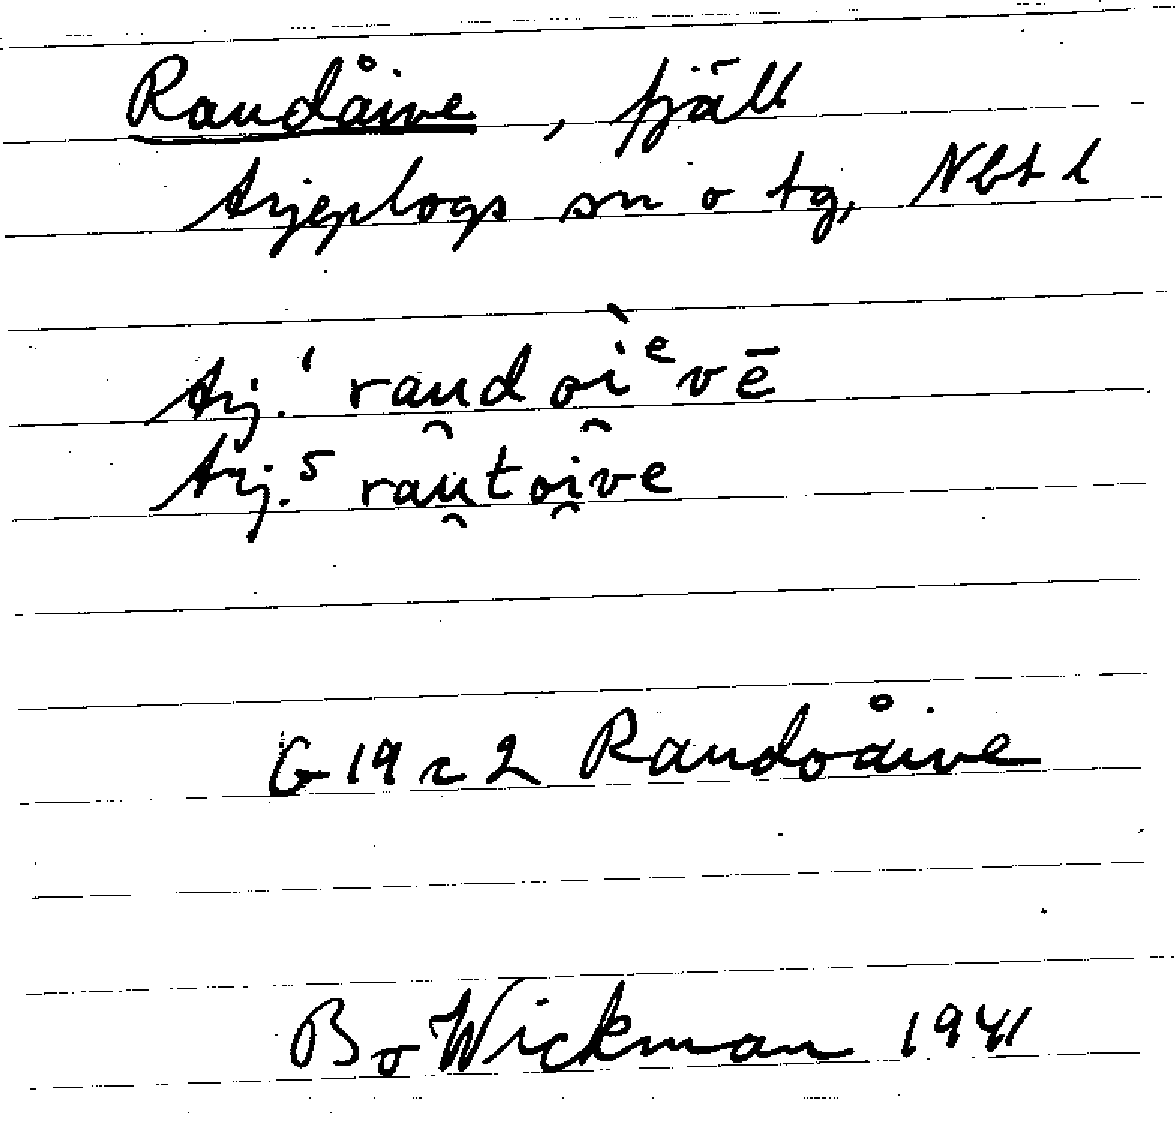 Raudåive, fjäll
Arjeplogs sn o tg, Nbt l
Arj.¹ rau̯doi̯ᵉvē
Arj.⁵ rau̯toi̯ve
G 19 c 2 Raudoåive
Bo Wickman 1941